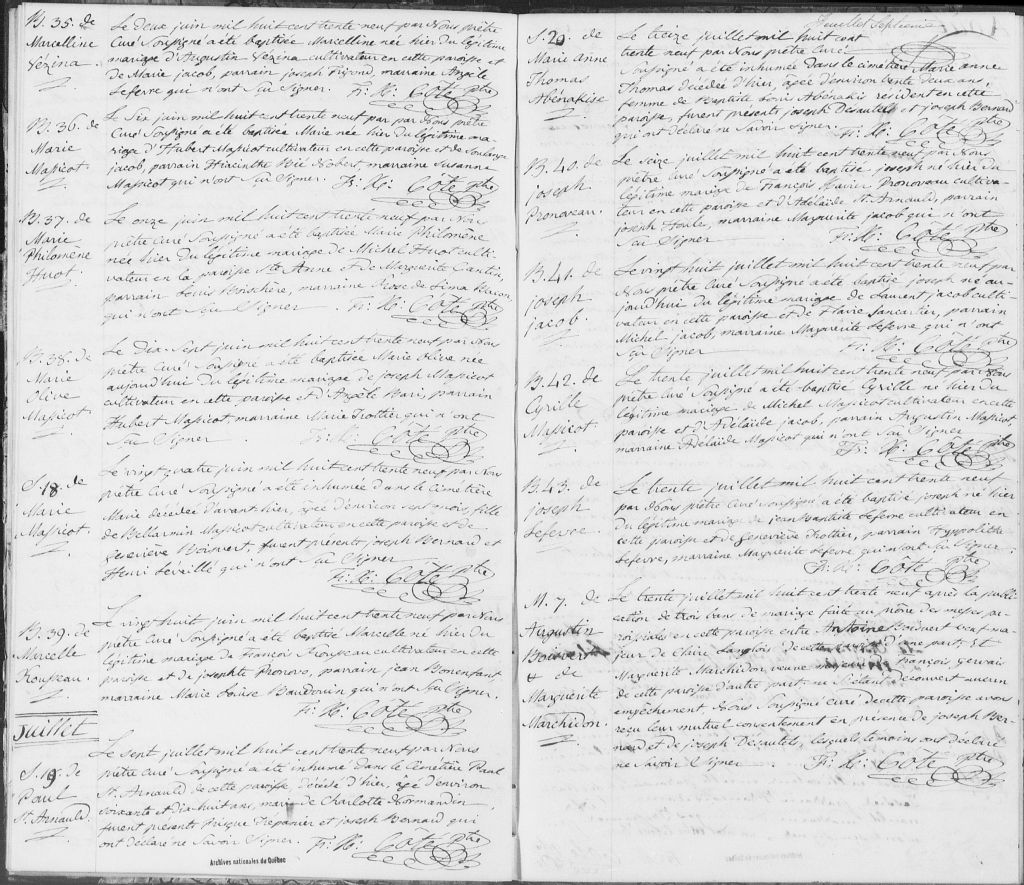 B. 35. de
Marcelline
Vézina.
Le deux juin mil huit cent trente neuf par Nous prêtre
Curé Soussigné a été baptisée Marcelline née hier du légitime
mariage d'Augustin Vézina cultivateur en cette paroisse et
de Marie jacob, parrain joseph, marraine Angèle
Lefevre qui n'ont Su Signer. Fr. X. Côté ptre
B. 36. de
Marie
Massicot.
Le Six juin mil huit cent trente neuf par par Nous prêtre
Curé Soussigné a été baptisée Marie née hier du légitime ma-
riage d'Hubert Massicot cultivateur en cette paroisse et de Soulange
jacob, parrain Hiacinthe, marraine Susanne
Massicot qui n'ont Su Signer. Fr. X. Côté ptre
B. 37. de
Marie
Philomène
Huot.
Le onze juin mil huit cent trente neuf par Nous
prêtre Curé Soussigné a été baptisée Marie Philomène
née hier du légitime mariage de Michel Huot culti-
vateur en la paroisse Ste Anne & de Marguerite
parrain Louis, marraine Rose de Lima
qui n'ont Su Signer. Fr. X. Côté ptre
B. 38. de
Marie
Olive
Massicot.
Le Dix-Sept juin mil huit cent trente neuf par Nous
prêtre Curé Soussigné a été baptisée Marie Olive née
aujourd'hui du légitime mariage de joseph Massicot
cultivateur en cette paroisse et d'Angèle Bari, parrain
Hubert Massicot, marraine Marie Trothier qui n'ont
Su Signer. Fr. X. Côté ptre
S. 18. de
Marie
Massicot.
Le vingt quatre juin mil huit cent trente neuf par Nous
prêtre Curé Soussigné a été inhumée dans le Cimetière
Marie décédée d'avant hier, âgée d'environ sept mois, fille
de Bellarmin Massicot cultivateur en cette paroisse et de
Geneviève Boisvert, furent présents joseph Bernard et
Henri Léveillé qui n'ont Su Signer
Fr. X. Côté ptre
B. 39. de
Marcelle
Rousseau.
Le vingt huit juin mil huit cent trente neuf par Nous
prêtre Curé Soussigné a été baptisée Marcelle né hier du
légitime mariage de François Rousseau cultivateur en cette
paroisse et de josephte Pronovo, parrain jean Bonenfant
marraine Marie Louise Baudouin qui n'ont Su Signer.
Fr. X. Côté ptre
Juillet
S. 19. de
Paul
St. Arnauld.
Le sept juillet mil huit cent trente neuf par Nous
prêtre Curé Soussigné a été inhumé dans le Cimetière Paul
St. Arnauld de cette paroisse décédé d'hier, âgé d'environ
Soixante et dix huit ans, mari de Charlotte Normandin,
furent présents Prisque Trepanier et joseph Bernard qui
ont déclaré ne Savoir Signer. Fr. X. Côté ptre
Archives nationales du Québec
Feuillet Septième
S. 20. de
Marie anne
Thomas
Abénakise
Le treize juillet mil huit cent
trente neuf par Nous prêtre Curé
Soussigné a été inhumée dans le cimetière Marie anne
Thomas décédée d'hier, âgée d'environ trente deux ans,
femme de Baptiste Loris Abénakis résident en cette
paroisse, furent présents joseph Desautels et joseph Bernard
qui ont déclaré ne Savoir Signer. Fr. X. Côté ptre
B. 40. de
joseph
Pronoveau.
Le Seize juillet mil huit cent trente neuf par Nous
prêtre Curé Soussigné a été baptisé joseph né hier du
légitime mariage de François Xavier Pronoveau cultiva-
teur en cette paroisse et d'Adélaïde St. Arnauld, parrain
joseph Houle, marraine Marguerite jacob qui n'ont
Su Signer Fr. X. Côté ptre
B. 41. de
joseph
jacob.
Le vingt huit juillet mil huit cent trente neuf par
Nous prêtre Curé Soussigné a été baptisé joseph né au-
jourd'hui du légitime mariage de Laurent jacob culti-
vateur en cette paroisse et de Claire Lancartier, parrain
Michel jacob, marraine Marguerite Lefevre qui n'ont
Su Signer Fr. X. Côté ptre
B. 42. de
Cyrille
Massicot.
Le trente juillet mil huit cent trente neuf par Nous
prêtre Curé Soussigné a été baptisé Cyrille né hier du
légitime mariage de Michel Massicot cultivateur en cette
paroisse et d'Adélaïde jacob, parrain Augustin Massicot,
marraine Adelaïde Massicot qui n'ont Su Signer
Fr. X. Côté ptre
B. 43. de
joseph
Lefevre.
Le trente juillet mil huit cent trente neuf
par Nous prêtre Curé Soussigné a été baptisé joseph né hier
du légitime mariage de jean Baptiste Lefevre cultivateur en
cette paroisse et de Geneviève Trothier, parrain Hyppolithe
Lefevre, marraine Marguerite Lefevre qui n'ont Su Signer.
Fr. X. Côté ptre
M. 7. de
Augustin
Boisvert
& de
Marguerite
Marchidon.
Le trente juillet mil huit cent trente neuf après la publi-
cation de trois bans de mariage faite au prône des messes pa-
roissiales en cette paroisse entre Antoine Boisvert veuf ma-
jeur de Claire Langlois de cette paroisse d'une part; Et
Marguerite Marchidon veuve majeure de François gervais
de cette paroisse d'autre part; ne S'étant découvert aucun
empêchement Nous Soussigné Curé de cette paroisse avons
reçu leur mutuel consentement en présence de joseph Ber-
nard et de joseph Désautels, lesquels témoins ont déclaré
ne Savoir Signer Fr. X. Côté ptre